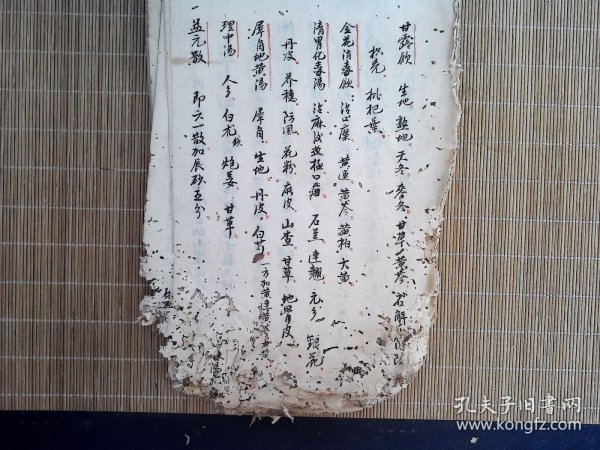 甘露飲 生地 熟地 天冬 麥冬 甘草 黄芩 石解
枳壳 枇杷葉
金花消毒飲 治口糜 黄連 黄芩 黄柏 大黄
清胃化毒湯 治麻後 口瘡 石羔 連翹 元参 銀花
丹皮 荊穗 防風 花粉 麻皮 山查 甘草 地骨皮
犀角地黄湯 犀角 生地 丹皮 白芍 一方加黄連黄芩
理中湯 人参 白朮 炮姜 甘草
益元散 即六一散加辰砂五分
孔夫子旧书网
KONGFZ.COM